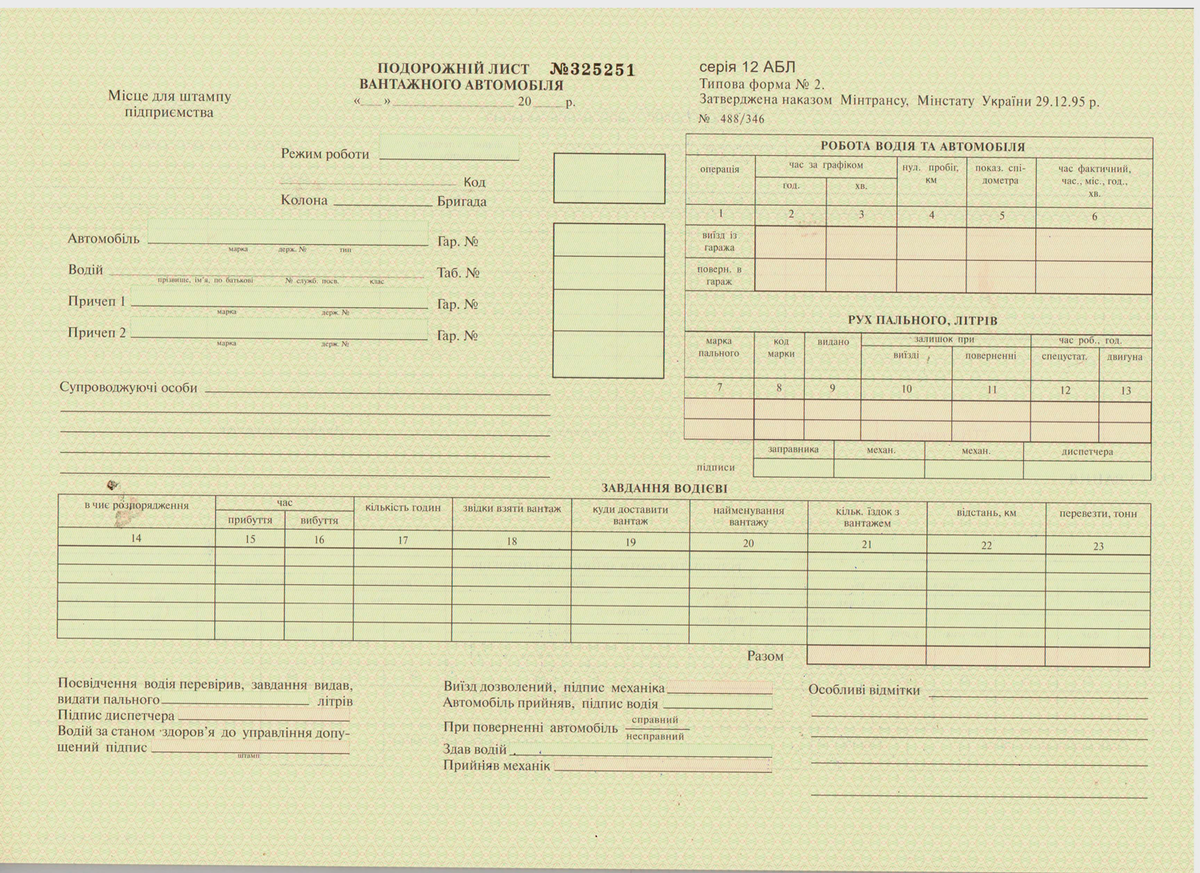 ПОДОРОЖНІЙ ЛИСТ №325251
ВАНТАЖНОГО АВТОМОБІЛЯ
« » 20 р.
Місце для штампу
підприємства
серія 12 АБЛ
Типова форма № 2.
Затверджена наказом Мінтрансу, Мінстату України 29.12.95 р.
№ 488/346
Режим роботи
Код
Колона Бригада
Автомобіль Гар. №
марка держ. № тип
Водій Таб. №
прізвище, ім'я, по батькові № служб. посв. клас
Причеп 1 Гар. №
марка держ. №
Причеп 2 Гар. №
марка держ. №
Супроводжуючі особи
РОБОТА ВОДІЯ ТА АВТОМОБІЛЯ
операція час за графіком нул. пробіг, км показ. спі-дометра час фактичний, час., міс., год., хв.
год. хв.
1 2 3 4 5 6
виїзд із гаража
поверн. в гараж
РУХ ПАЛЬНОГО, ЛІТРІВ
марка пального код марки видано залишок при час роб., год.
виїзді поверненні спецустат. двигуна
7 8 9 10 11 12 13
заправника механ. механ. диспетчера
підписи
ЗАВДАННЯ ВОДІЄВІ
в чиє розпорядження час кількість годин звідки взяти вантаж куди доставити вантаж найменування вантажу кільк. їздок з вантажем відстань, км перевезти, тонн
прибуття вибуття
14 15 16 17 18 19 20 21 22 23
Разом
Посвідчення водія перевірив, завдання видав,
видати пального літрів
Підпис диспетчера
Водій за станом здоров'я до управління допу-
щений підпис
штамп
Виїзд дозволений, підпис механіка
Автомобіль прийняв, підпис водія
При поверненні автомобіль справний
несправний
Здав водій
Прийняв механік
Особливі відмітки